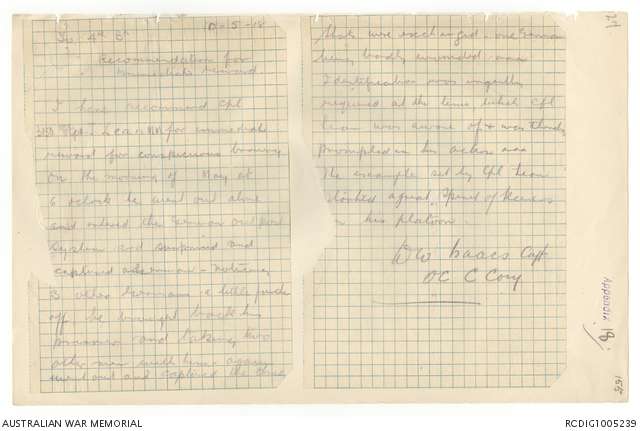 10-5-18
To 4th Bn
Recommendation for
immediate reward.
I beg recommend Cpl
for immediate
reward for conspicuous bravery
On the morning of May at
6 o'clock he went out alone
and entered the German outpost
system and surprised and
captured a German - noticing
3 other Germans a little further
off, he brought back his
prisoner and taking two
other men with him again
went out and captured the three
Shots were exchanged one German
being badly wounded. aaa
Identification was urgently
required at the time which Cpl
was aware of & was thereby
prompted in his action aaa
The example set by Cpl
a great Spirit of Keenness
in his platoon.
D W Isaacs Capt
OC C Coy
Appendix 18
AUSTRALIAN WAR MEMORIAL
RCDIG1005239